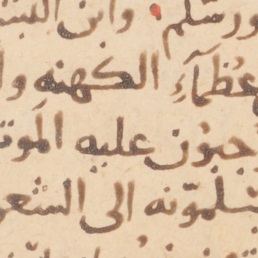 ورسلم وابن البشر
عُظمآءِ الكهنهِ وا
جبون عليه الموت
يسلمونه الى الشعو